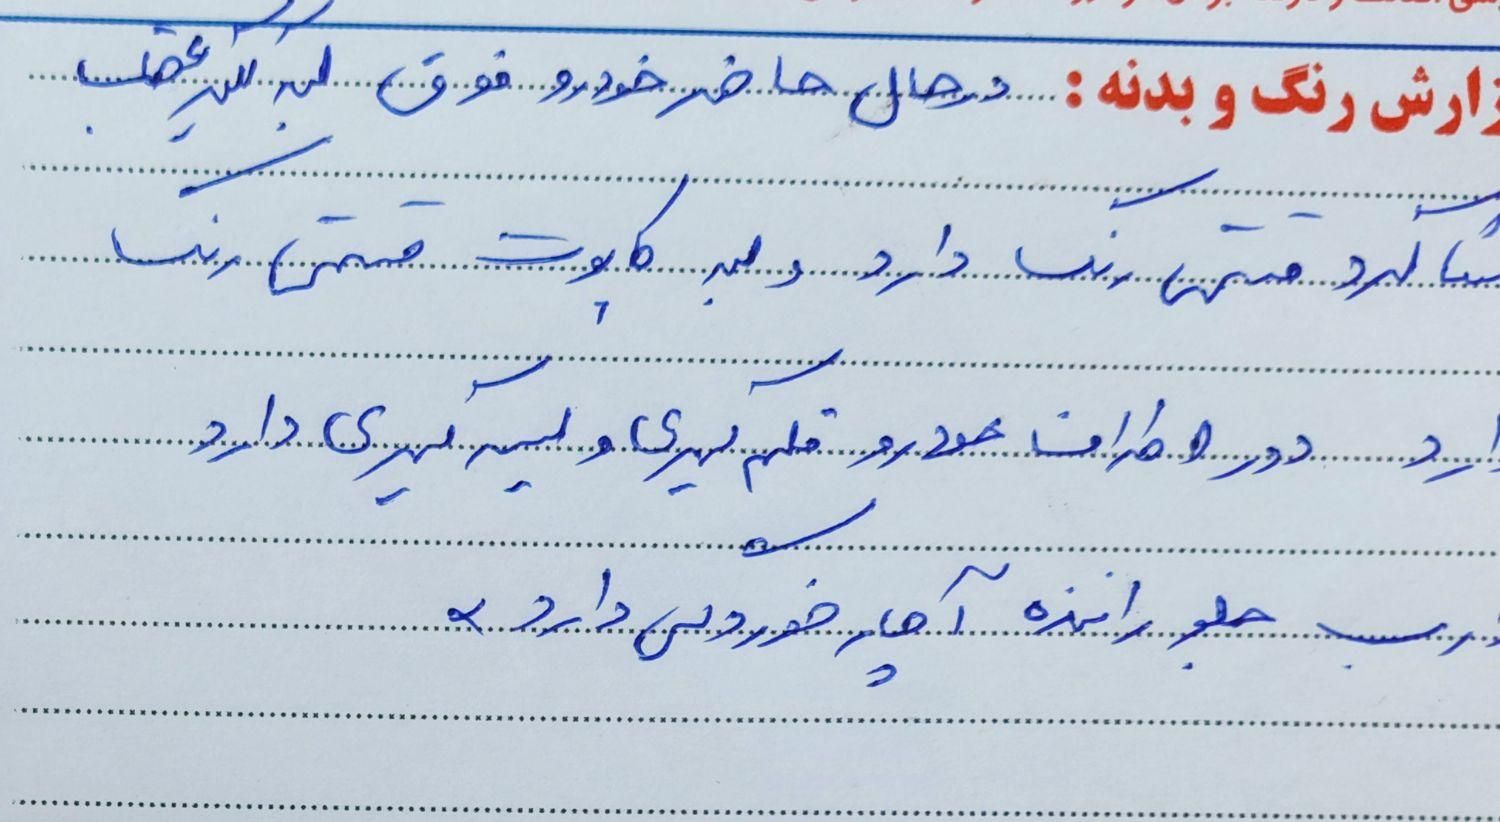 زارش رنگ و بدنه : در حال حاضر خودرو فوق لبه گلگیر عقب
شاگرد قسمتی رنگ دارد و لبه کاپوت قسمتی رنگ
دارد دور اطراف خودرو قلم گیری و لیسه گیری دارد
درب جلو راننده آچار خوردگی دارد